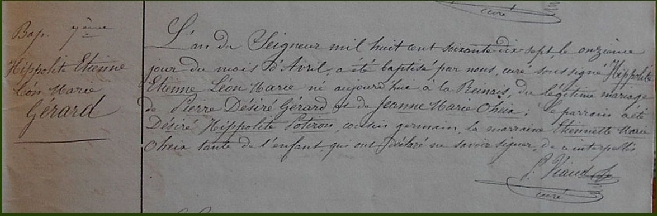 curé
Bap. 9ème
Hippolite Etienne
Léon Marie
Gérard
L'an du Seigneur mil huit cent soixante dix sept, le onzième
jour du mois d'Avril, a été baptisé par nous, curé soussigné Hippolite
Etienne Léon Marie né aujourd'hui à la du légitime mariage
de Pierre Désiré Gérard et de Jeanne Marie Oheix; le parrain a été
Désiré Hippolite Potiron cousin germain, la marraine Etiennette Marie
Oheix tante de l'enfant qui ont déclaré ne savoir signer de ce interpellés
P. Viaud
curé